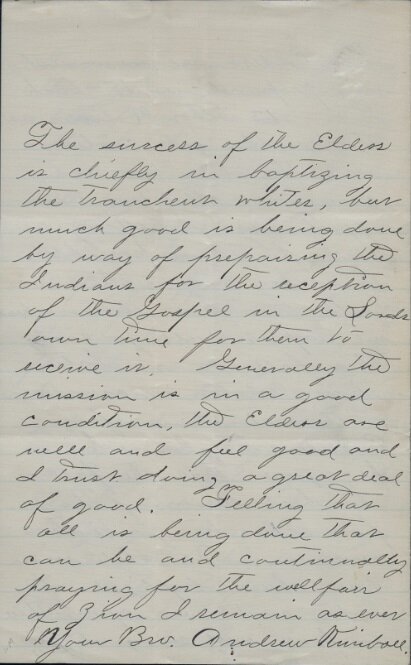 The success of the Elders
is chiefly in baptizing
the trancheut whites, but
much good is being done
by way of prepairing the
Indians for the reception
of the Gospel in the Lords
own time for them to
receive it. Generally the
mission is in a good
condition, the Elders are
well and feel good and
I trust doing a great deal
of good. Felling that
all is being done that
can be and continually
praying for the wellfair
of Zion I remain as ever
Your Bro. Andrew Kimball.